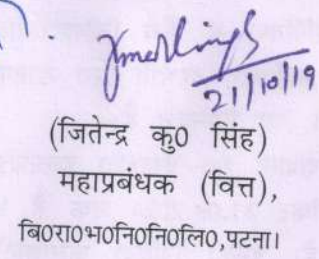 21/10/19
(जितेन्द्र कु0 सिंह)
महाप्रबंधक (वित्त),
बि0रा0भ0नि0नि0लि0,पटना।